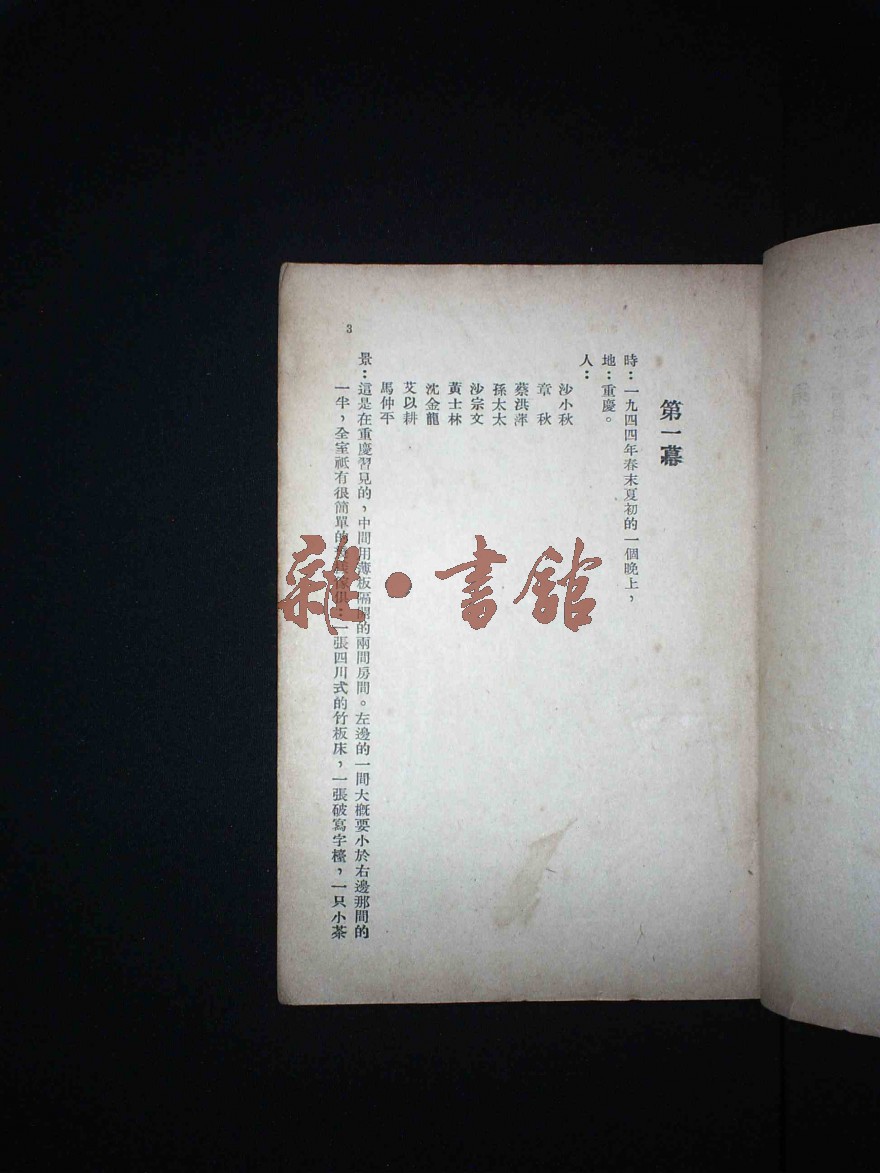 第一幕
時：一九四四年春末夏初的一個晚上，
地：重慶。
人：
沙小秋
章　秋
蔡洪萍
孫太太
沙宗文
黃士林
沈金龍
艾以耕
馬仲平
景：這是在重慶習見的，中間用薄板隔開的兩間房間。左邊的一間大概要小於右邊那間的
一半，全室祗有很簡單的傢俱：一張四川式的竹板床，一張破寫字檯，一只小茶
3
雜·書舘